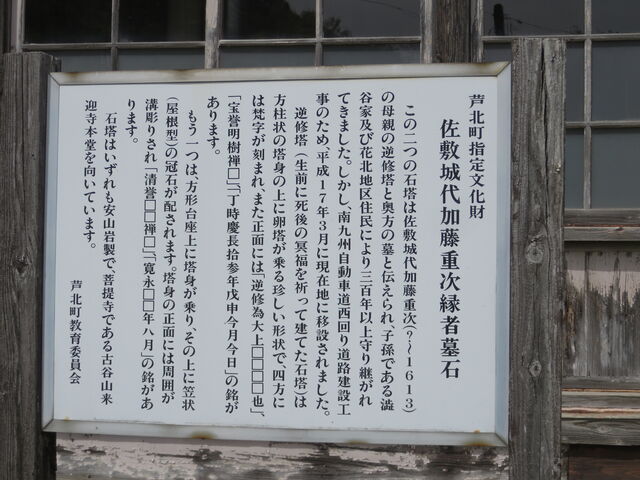 芦北町指定文化財
佐敷城代加藤重次縁者墓石
この二つの石塔は佐敷城代加藤重次(?〜1613)
の母親の逆修塔と奥方の墓と伝えられ、子孫である澁
谷家及び花北地区住民により三百年以上守り継がれ
てきました。しかし、南九州自動車道西回り道路建設工
事のため、平成17年3月に現在地に移設されました。
逆修塔(生前に死後の冥福を祈って建てた石塔)は
方柱状の塔身の上に卵塔が乗る珍しい形状で、四方に
は梵字が刻まれ、また正面には「逆修為大上□□□□也」、
「宝誉明樹禅□」、「丁時慶長拾参年戊申今月今日」の銘が
あります。
もう一つは、方形台座上に塔身が乗り、その上に笠状
(屋根型)の冠石が配されます。塔身の正面には周囲が
溝彫りされ「清誉□□禅□」「寛永□□年八月」の銘があ
ります。
石塔はいずれも安山岩製で、菩提寺である古谷山来
迎寺本堂を向いています。
芦北町教育委員会